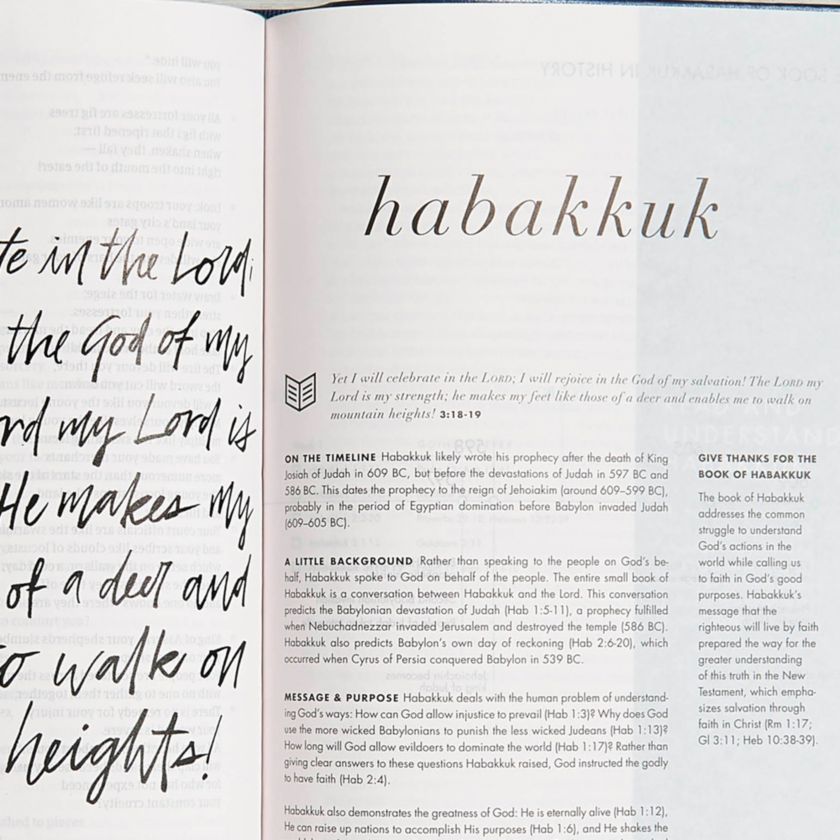 in the Lord;
the God of my
my Lord is
He makes my
of a deer and
walk on
heights!
habakkuk
Yet I will celebrate in the LORD; I will rejoice in the God of my salvation! The LORD my
Lord is my strength; he makes my feet like those of a deer and enables me to walk on
mountain heights! 3:18-19
ON THE TIMELINE Habakkuk likely wrote his prophecy after the death of King
Josiah of Judah in 609 BC, but before the devastations of Judah in 597 and
586 BC. This dates the prophecy to the reign of Jehoiakim (around 609–599 BC),
probably in the period of Egyptian domination before Babylon invaded Judah
(609–605 BC).
A LITTLE BACKGROUND Rather than speaking to the people on God's be-
half, Habakkuk spoke to God on behalf of the people. The entire small book of
Habakkuk is a conversation between Habakkuk and the Lord. This conversation
predicts the Babylonian devastation of Judah (Hab 1:5-11), a prophecy fulfilled
when Nebuchadnezzar invaded Jerusalem and destroyed the temple (586 BC).
Habakkuk also predicts Babylon's own day of reckoning (Hab 2:6-20), which
occurred when Cyrus of Persia conquered Babylon in 539 BC.
MESSAGE & PURPOSE Habakkuk deals with the human problem of understand-
ing God's ways: How can God allow injustice to prevail (Hab 1:3)? Why does God
use the more wicked Babylonians to punish the less wicked Judeans (Hab 1:13)?
How long will God allow evildoers to dominate the world (Hab 1:17)? Rather than
giving clear answers to these questions Habakkuk raised, God instructed the godly
to have faith (Hab 2:4).
Habakkuk also demonstrates the greatness of God: He is eternally alive (Hab 1:12),
He can raise up nations to accomplish His purposes (Hab 1:6), and He shakes the
GIVE THANKS FOR THE
BOOK OF HABAKKUK
The book of Habakkuk
addresses the common
struggle to understand
God's actions in the
world while calling us
to faith in God's good
purposes. Habakkuk's
message that the
righteous will live by faith
prepared the way for the
greater understanding
of this truth in the New
Testament, which empha-
sizes salvation through
faith in Christ (Rm 1:17;
Gl 3:11; Heb 10:38-39).